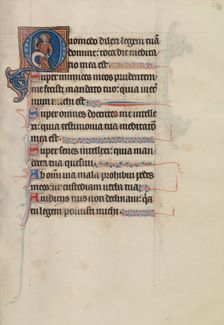 Quomodo dilexi legem tuā
domine: tota die medita
tio mea est.
Super inimicos meos prudentem
me fecisti mandato tuo: quia in eter
num michi est.
Super omnes docentes me intelle
xi: quia testimonia tua meditatio
mea est.
Super senes intellexi: quia man
data tua quesiui.
Ab omi uia mala prohibui pedes
meos: ut custodiam uerba tua.
A iudiciis tuis non declinaui: q̄a
tu legem posuisti michi.